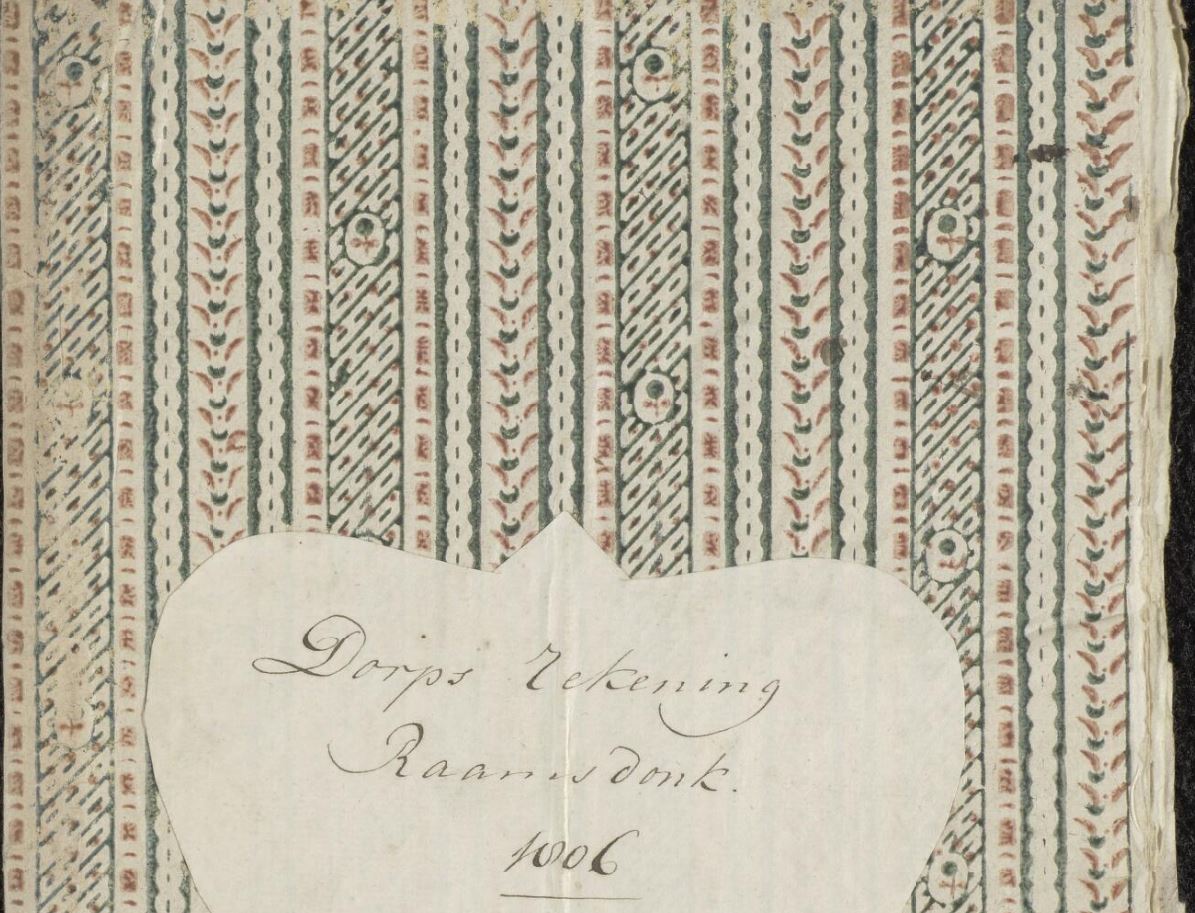 Dorps rekening
Raamsdonk.
1806